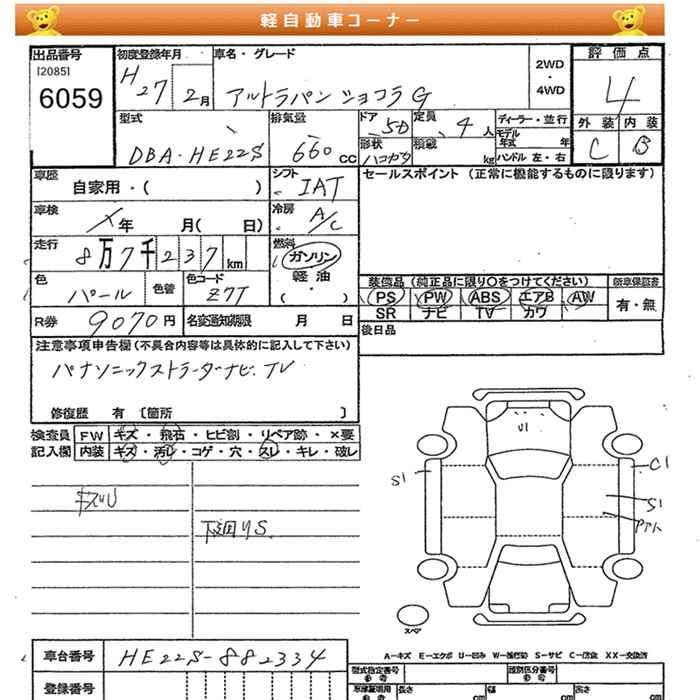 軽自動車コーナー
出品番号
[2085]
6059
初度登録年月
H 27 2月
車名・グレード
アルトラパン ショコラ G
2WD
・
4WD
評価点
4
外装 内装
C B
型式
DBA・HE22S
排気量
660 CC
ドア 5D
定員 4人
形状
積載 kg
ディーラー・並行
モデル年式 年
ハンドル 左・右
車歴
自家用・( )
シフト
IAT
セールスポイント (正常に機能するものに限ります)
車検
年 月( 日)
冷房
A/C
走行
8万7千237km
燃料
ガソリン
・
軽油
( )
色
パール
色替
色コード
Z7T
装備品 (純正品に限り○をつけてください)
新車保証書
PS PW ABS エアB AW
SR ナビ TV カワ
有・無
R券 9070円
名変通知期限 月 日
後日品
注意事項申告欄 (不具合内容等は具体的に記入して下さい)
パナソニックストラーダナビ. TV
修復歴 有 〔箇所 〕
検査員 FW キズ・飛石・ヒビ割・リペア跡・×要
記入欄 内装 キズ・汚れ・コゲ・穴・スレ・キレ・破レ
下廻りS
U1
S1
C1
S1
スペア
A-キズ E-エクボ U-凹み W-補修跡 S-サビ C-腐食 XX-交換済
車台番号 HE22S-882334
登録番号
型式指定番号
参考
類別区分番号
参考
長さ cm 幅 cm 高さ cm